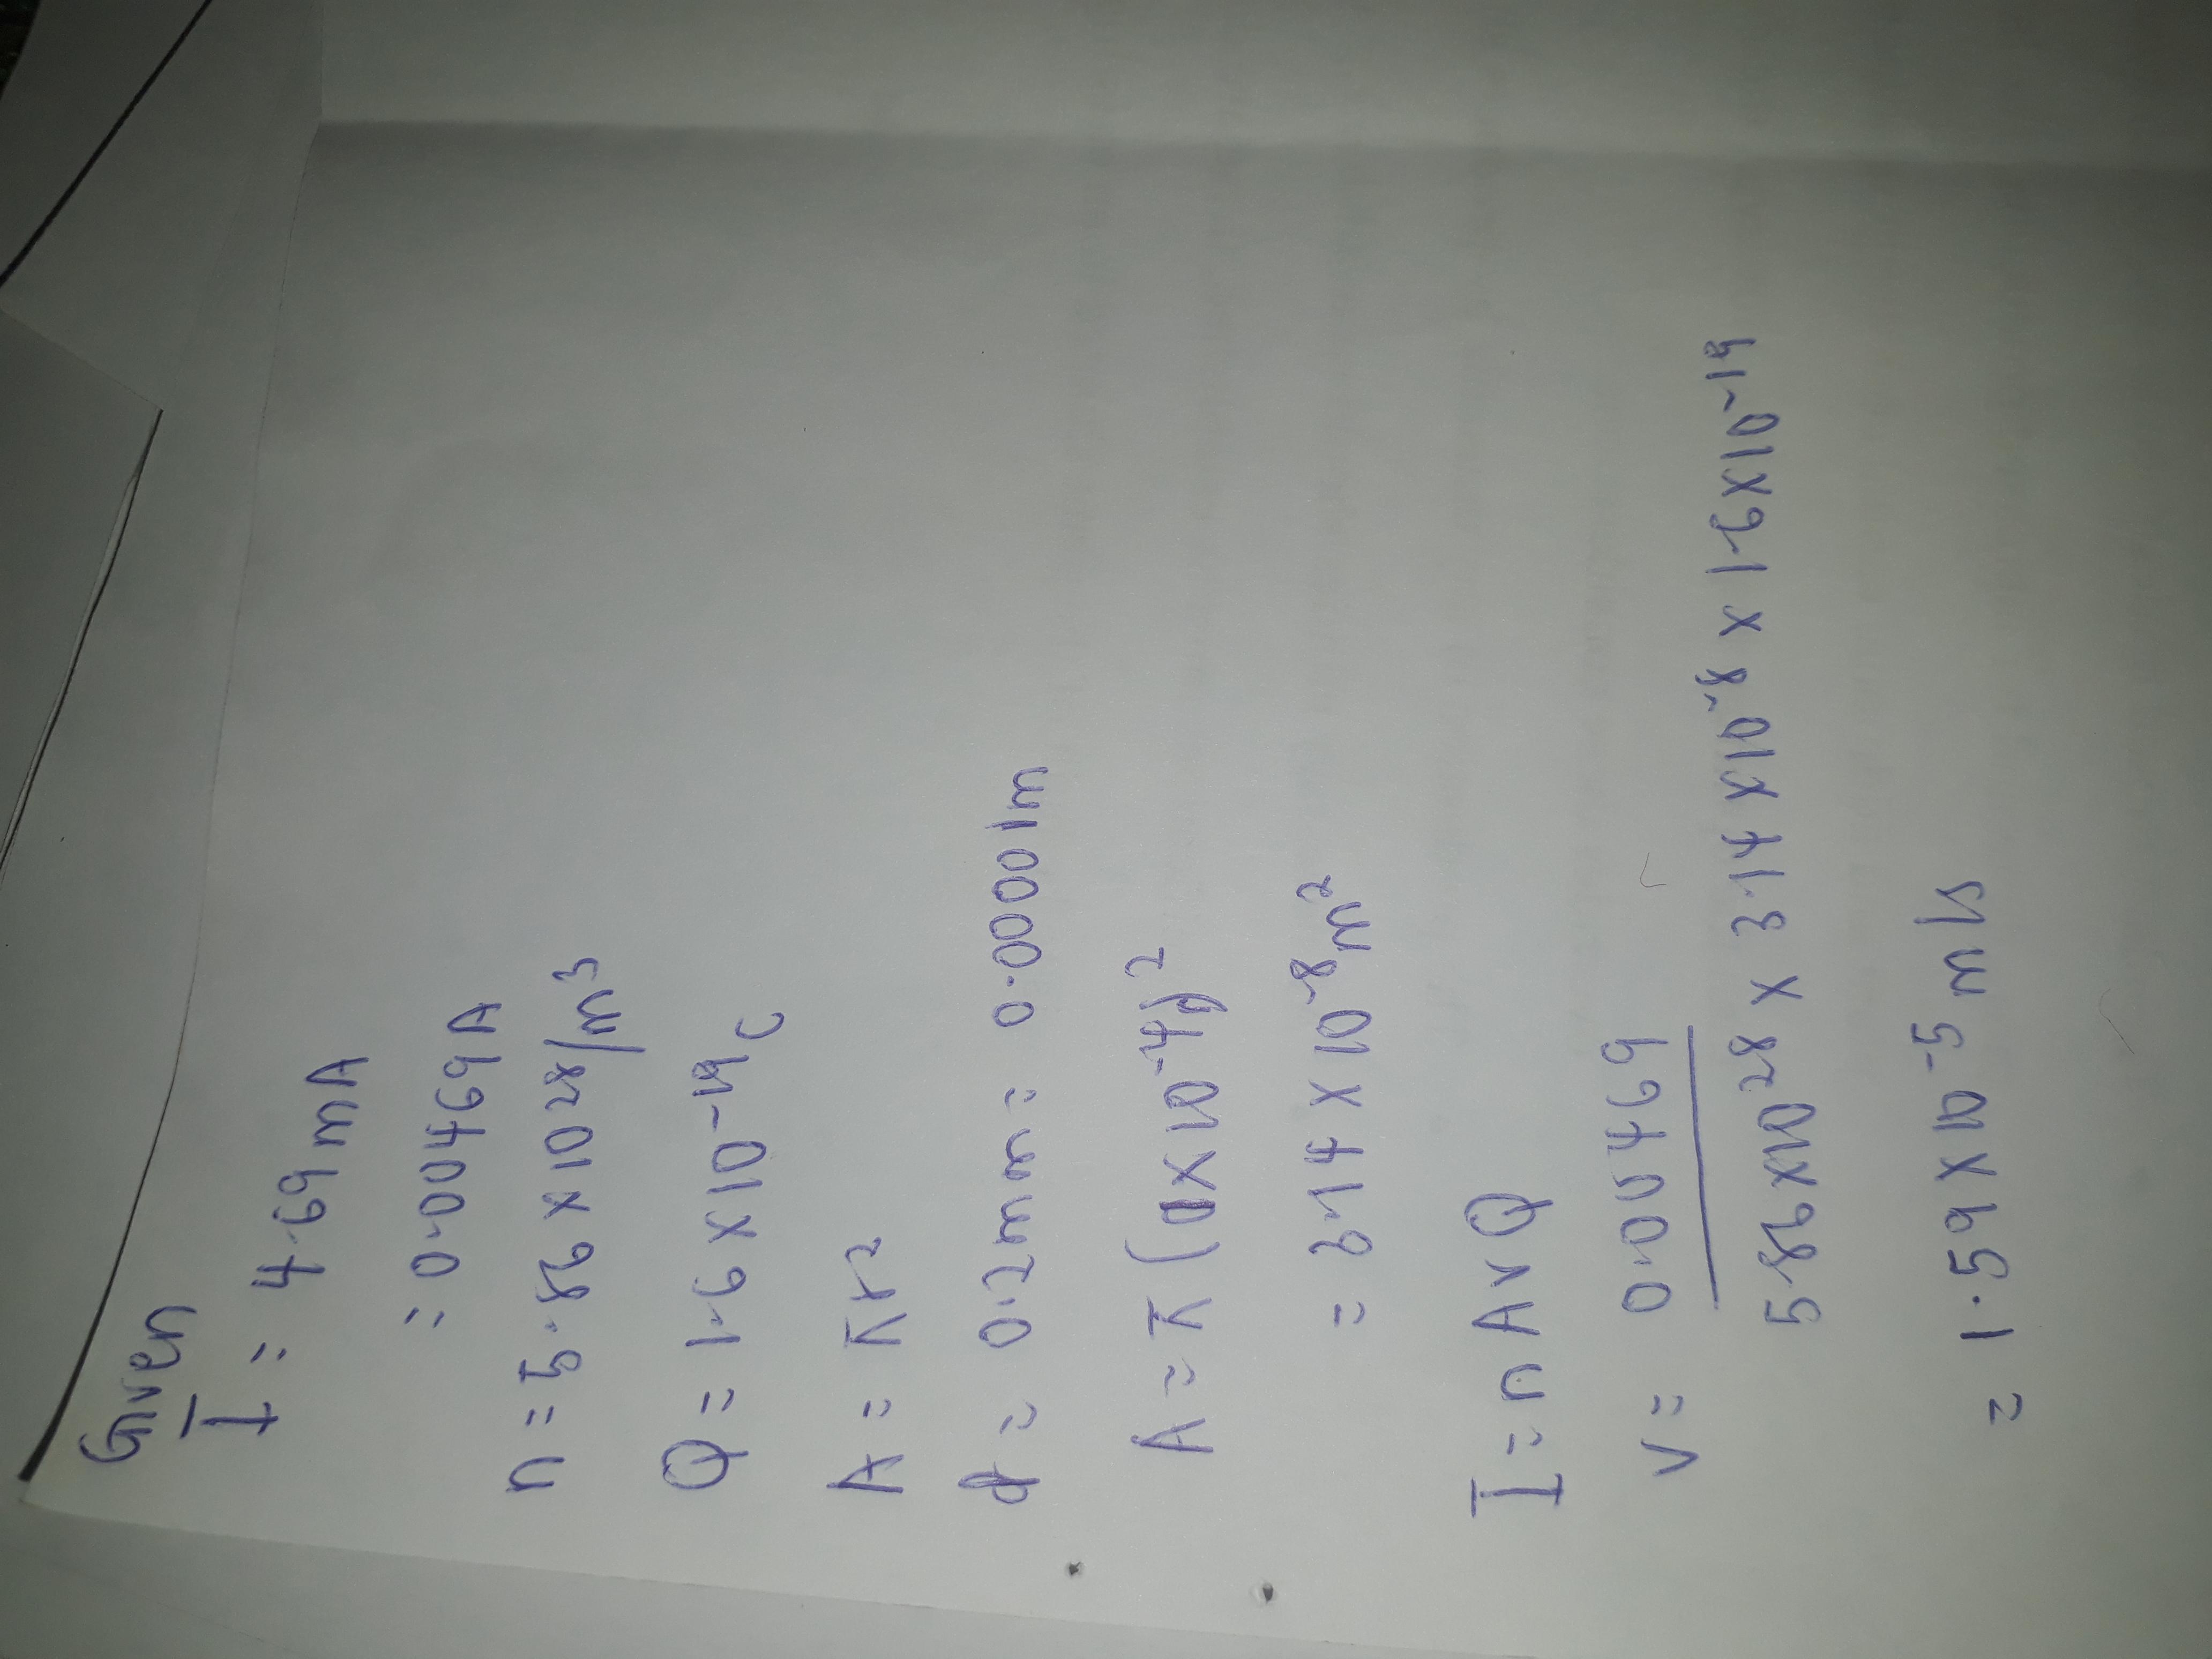 Given
I = 4.69 mA
= 0.00469 A
n = 5.86 x 10²⁸/m³
Q = 1.6 x 10⁻¹⁹ C
A = πr²
d = 0.2mm = 0.0001m
A = π (1x10⁻⁴)²
= 3.14 x 10⁻⁸ m²
I = n A v Q
v = 0.00469
5.86x10²⁸ x 3.14 x10⁻⁸ x 1.6x10⁻¹⁹
= 1.59 x 10⁻⁵ m/s